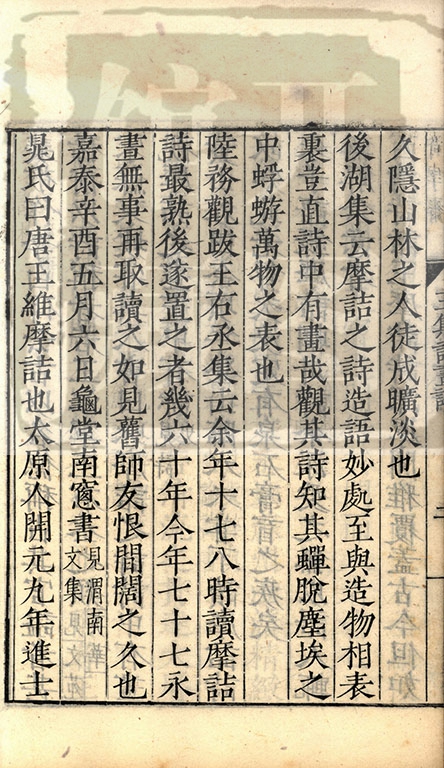 久隱山林之人徒成曠淡也
後湖集云摩詰之詩造語妙處至與造物相表
裏豈直詩中有畫哉觀其詩知其蟬脫塵埃之
中蜉蝣萬物之表也
陸務觀跋王右丞集云余年十七八時讀摩詰
詩最熟後遂置之者幾六十年今年七十七永
晝無事再取讀之如見舊師友恨間闊之久也
嘉泰辛酉五月六日龜堂南窻書見渭南文集
晁氏曰唐王維摩詰也太原人開元九年進士